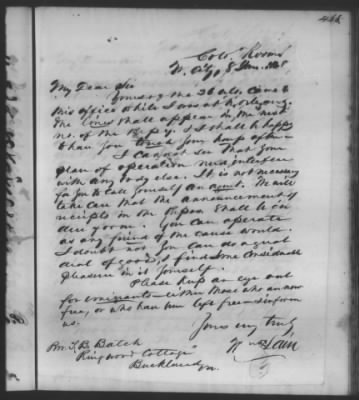 Colo. Rooms
W. City, 8 Jan. 1848
My Dear Sir
Yours of the 26 ulto, came to
this office while I was at N. Orleans.
The lines shall appear in the next
no. of the Rep'y. I shall be happy
to hear you
I cannot see that your
plan of operation need interfere
with any body else. It is not necessary
for you to call yourself an agent. We will
take care that the announcement of
receipts in the Repos. shall be in
order. You can operate
as any friend of the cause would.
I doubt not you can do a great
deal of good, & find some considerable
pleasure in it yourself.
Please keep an eye out
for emigrants either those who are now
free, or who have been left free & inform
us.
Yours very truly
W. McLain
T. B. Balch
Ringwood Cottage
Buckland Va.